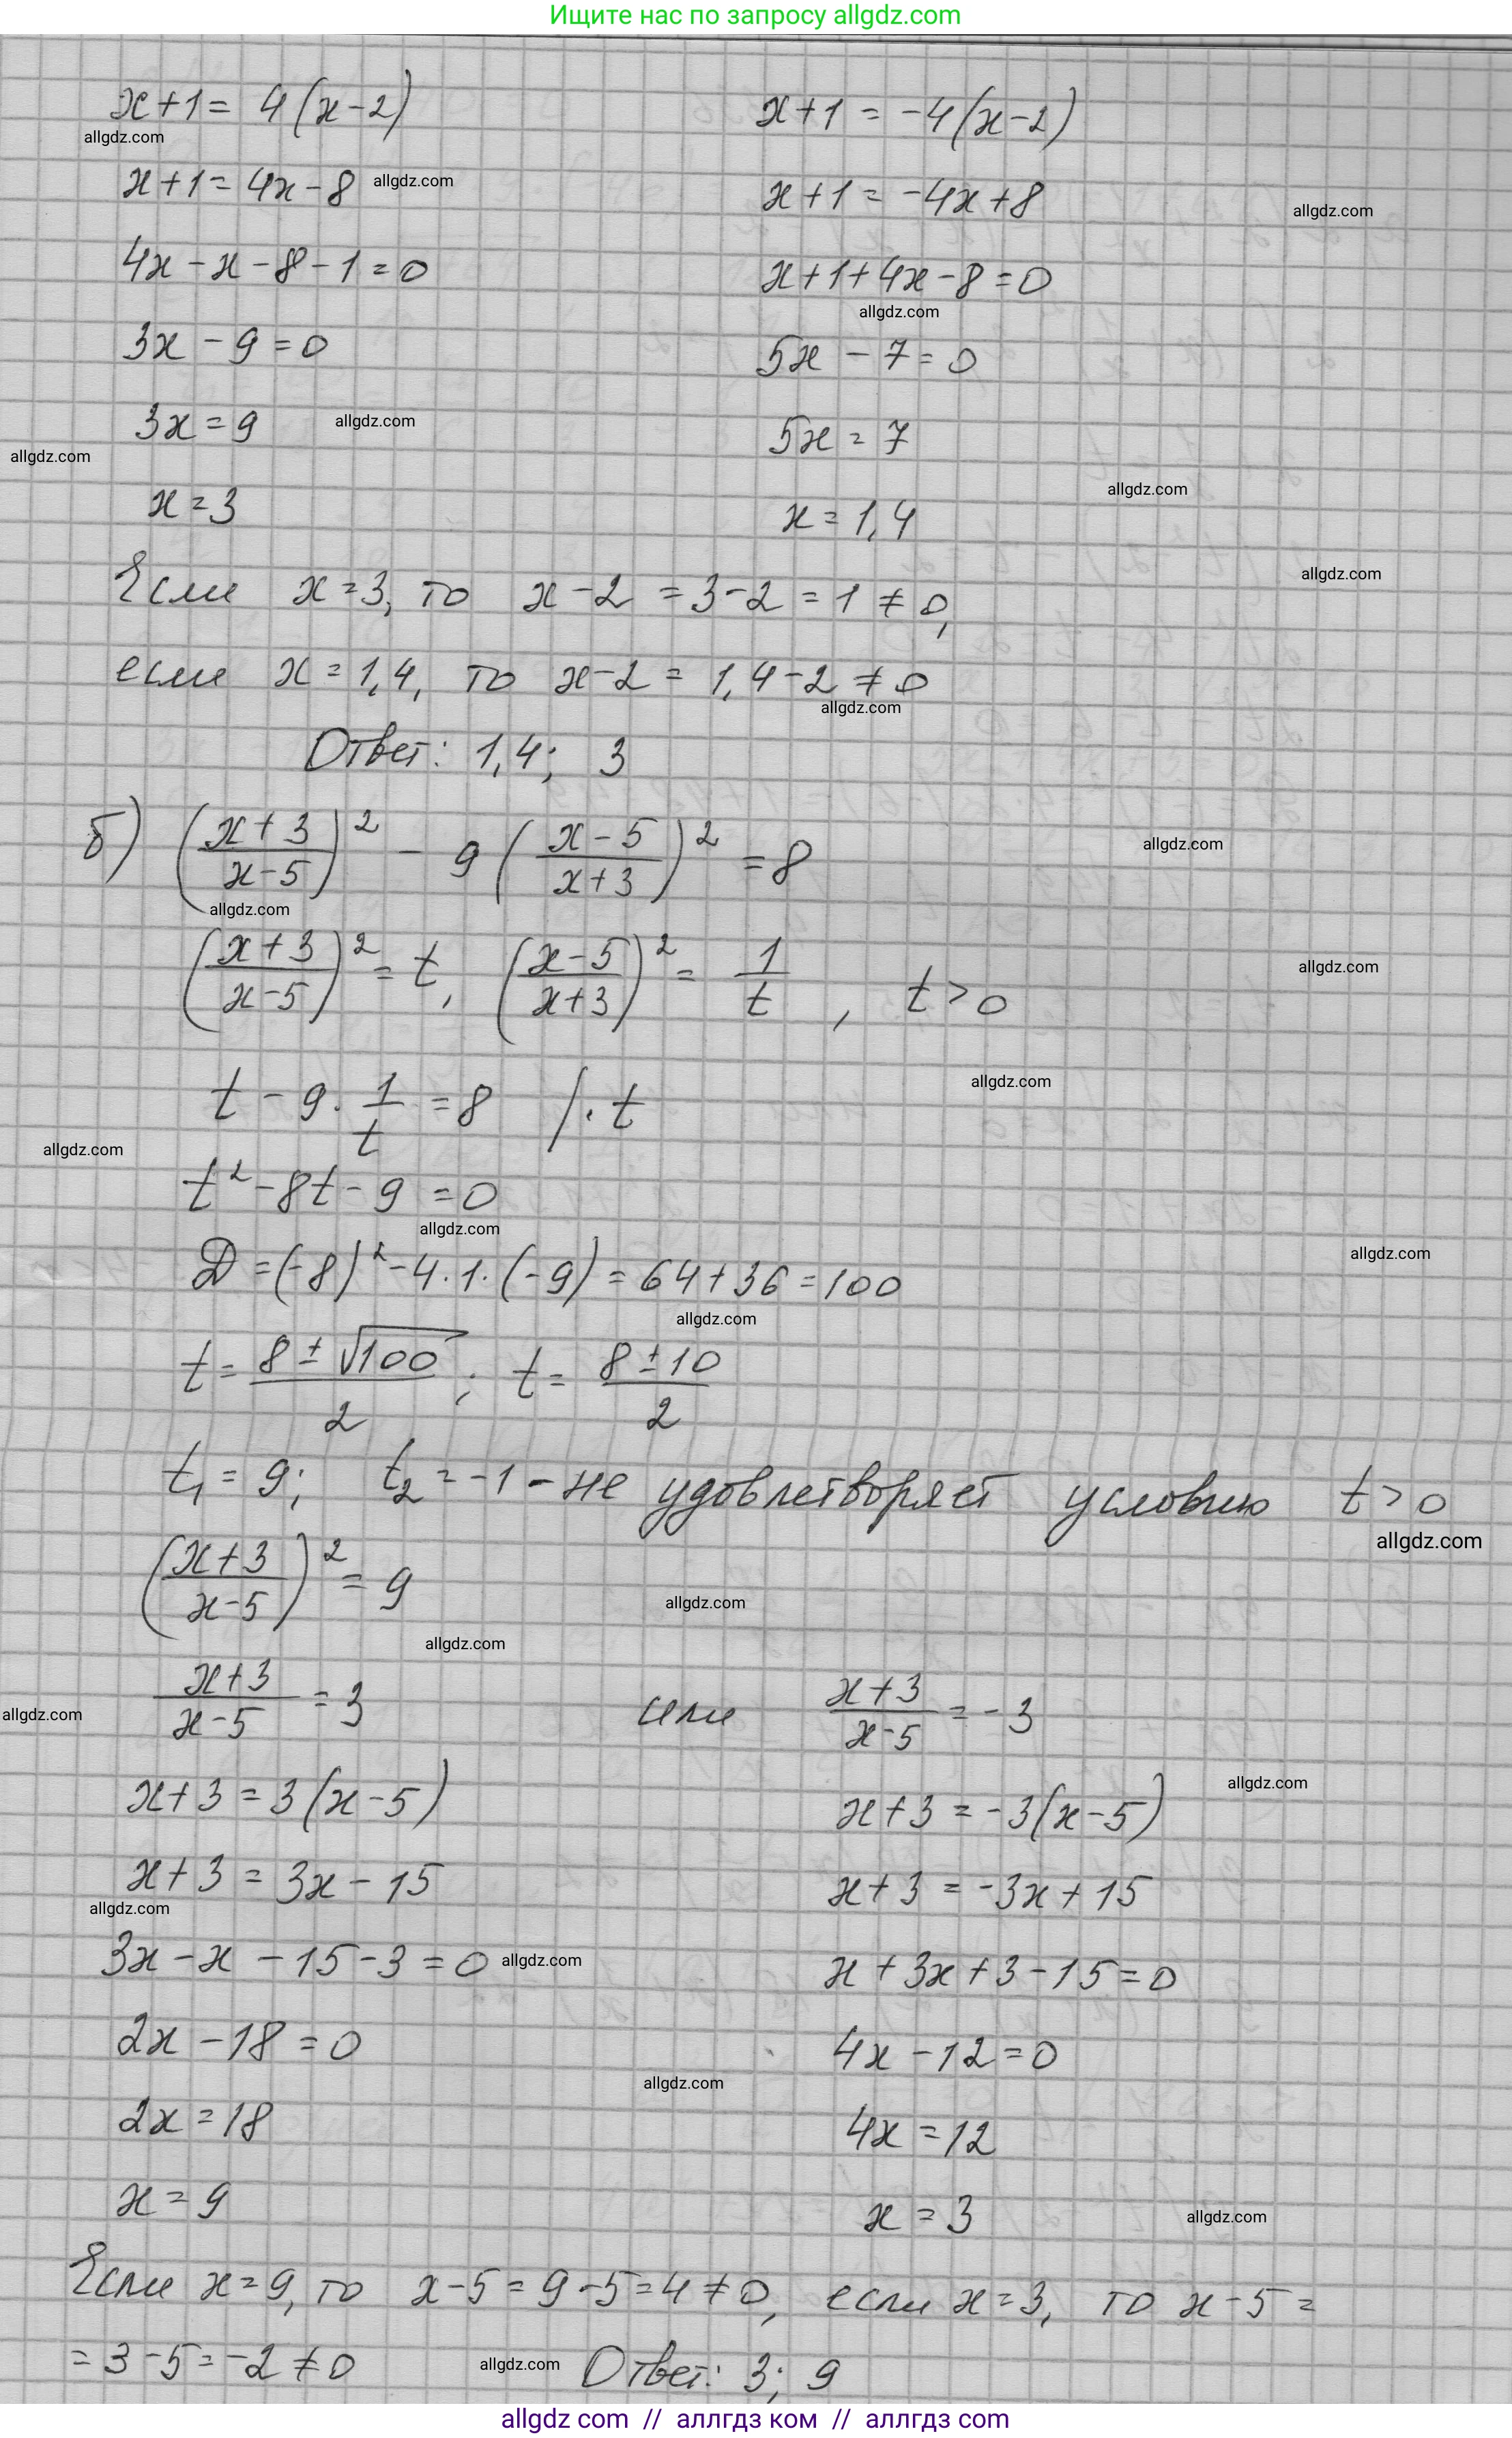 Ищите нас по запросу allgdz.com
x+1= 4(x-2)   x+1 = -4(x-2)
allgdz.com
x+1= 4x-8 allgdz.com   x+1 = -4x+8 allgdz.com
4x-x-8-1=0   x+1+4x-8=0
allgdz.com
3x-9=0   5x-7=0
3x=9 allgdz.com   5x=7
allgdz.com
allgdz.com
x=3   x=1,4
Если x=3, то x-2 = 3-2 = 1 ≠ 0, allgdz.com
если x=1,4, то x-2 = 1,4-2 ≠ 0
allgdz.com
Ответ: 1,4; 3
б) ((x+3)/(x-5))² - 9((x-5)/(x+3))² = 8 allgdz.com
allgdz.com
((x+3)/(x-5))² = t, ((x-5)/(x+3))² = 1/t, t>0 allgdz.com
allgdz.com
t - 9·1/t = 8 /·t
allgdz.com
t²-8t-9=0
allgdz.com
D=(-8)²-4·1·(-9)=64+36=100 allgdz.com
allgdz.com
t= (8±√100)/2; t= (8±10)/2
t₁=9; t₂=-1 - не удовлетворяет условию t>0
allgdz.com
((x+3)/(x-5))² = 9 allgdz.com
allgdz.com
allgdz.com (x+3)/(x-5) = 3 или (x+3)/(x-5) = -3
allgdz.com
x+3 = 3(x-5)   x+3 = -3(x-5)
x+3 = 3x-15   x+3 = -3x+15
allgdz.com
3x-x-15-3=0 allgdz.com   x+3x+3-15=0
2x-18=0   4x-12=0
allgdz.com
2x=18   4x=12
x=9   x=3 allgdz.com
Если x=9, то x-5=9-5=4≠0, если x=3, то x-5=
=3-5=-2≠0 allgdz.com Ответ: 3; 9
allgdz com // аллгдз ком // аллгдз com